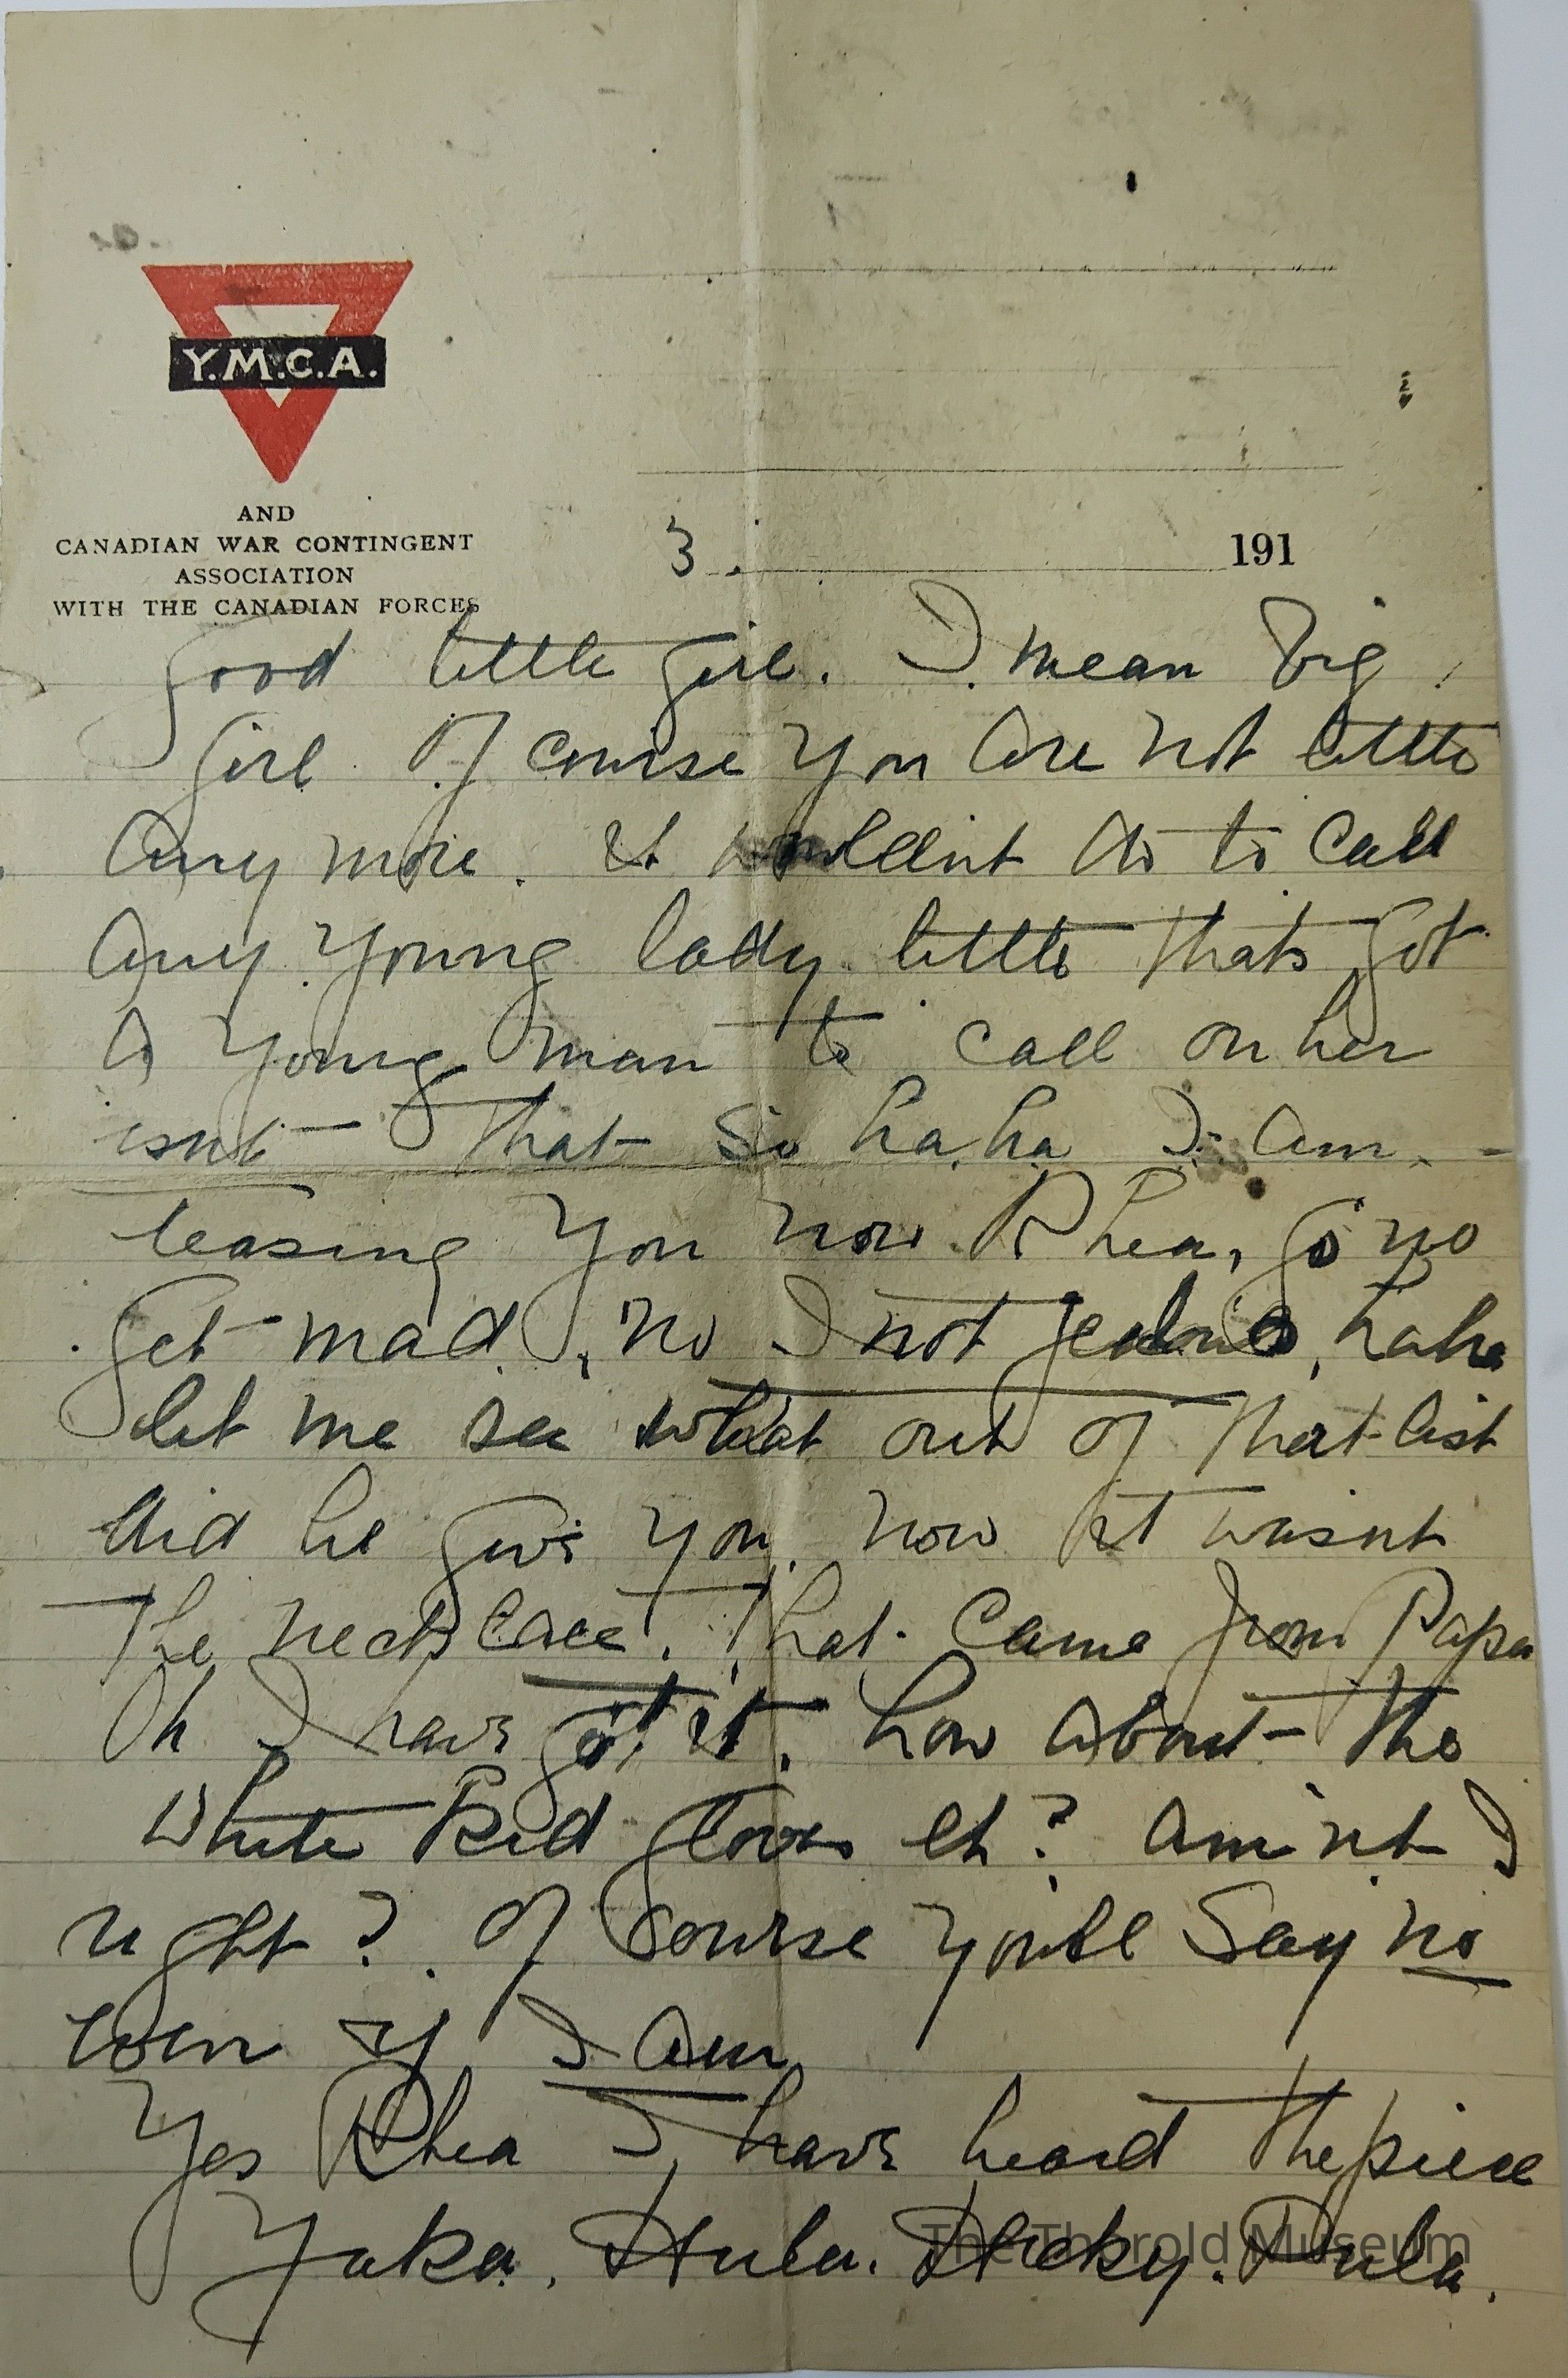 Y.M.C.A.
AND
CANADIAN WAR CONTINGENT
ASSOCIATION
WITH THE CANADIAN FORCES
3. 191
good little girl. I mean big
girl. Of course you are not little
any more. It wouldn't do to call
any young lady little thats got
a young man to call on her
isnt that so ha, ha I am
teasing you now Rhea, go no
get mad, no I not jealous, haha
let me see what out of that list
did he give you. now it wasnt
the necklace. That came from Papa
Oh I have got it. how about the
white Kid gloves eh? am'nt I
right? Of course you'll say no
even if I am
Yes Rhea I have heard the piece
Yaka. Hula. Hicky. Dula.
The Thorold Museum